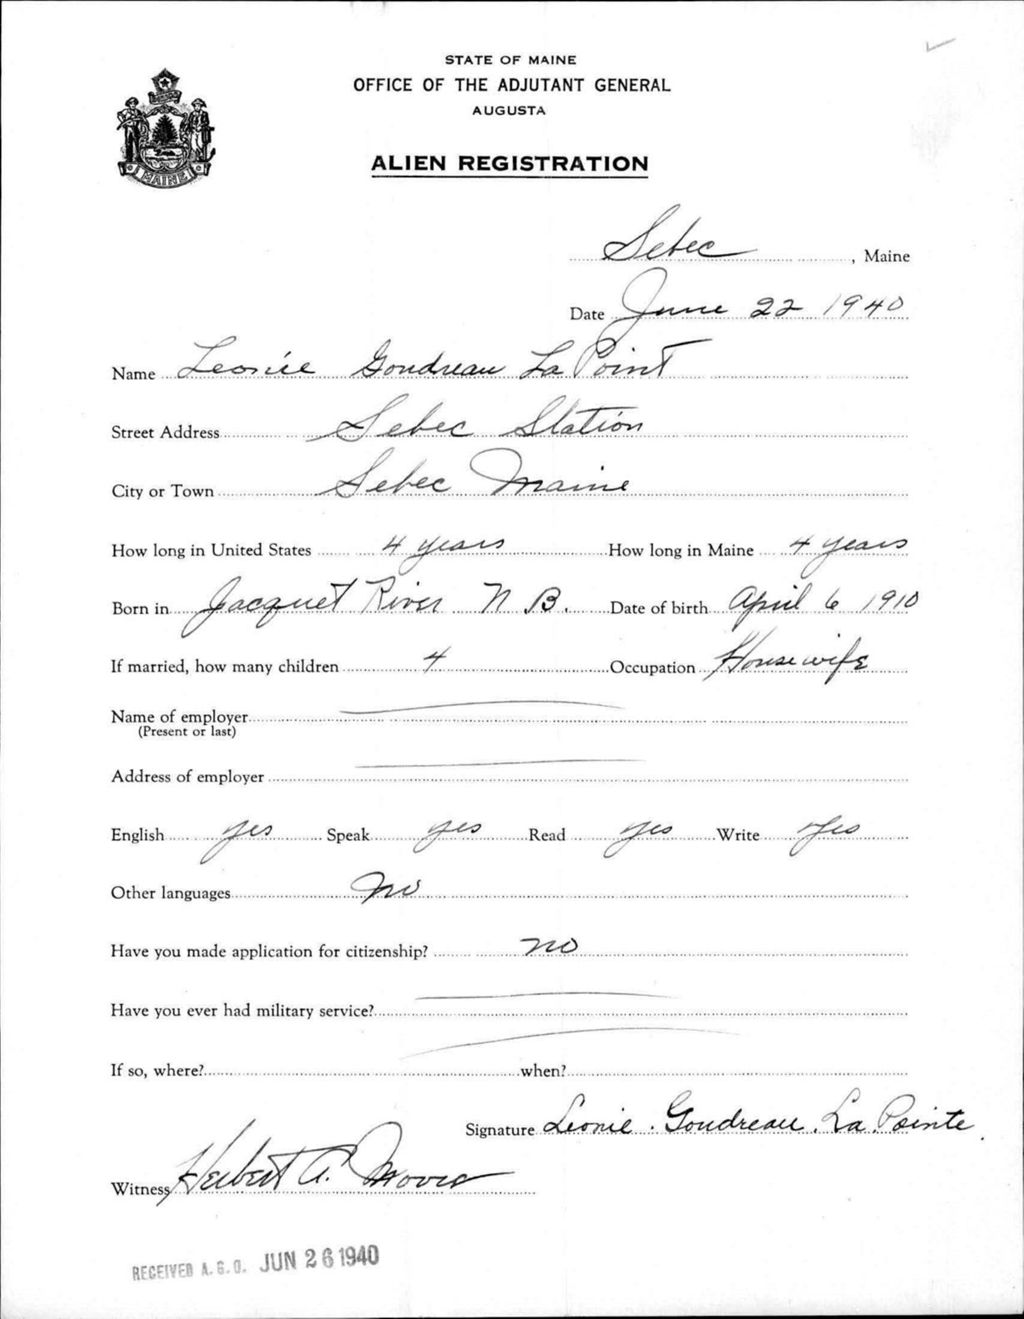 STATE OF MAINE
OFFICE OF THE ADJUTANT GENERAL
AUGUSTA
ALIEN REGISTRATION
MAINE
Sebec, Maine
Date June 22 1940
Name Leonie Goudreau La Point
Street Address Sebec Station
City or Town Sebec Maine
How long in United States 4 years How long in Maine 4 years
Born in Jacquet River N B. Date of birth April 6 1910
If married, how many children 4 Occupation Housewife
Name of employer
(Present or last)
Address of employer
English yes Speak yes Read yes Write yes
Other languages no
Have you made application for citizenship? no
Have you ever had military service?
If so, where? when?
Signature Leonie Goudreau La Pointe
Witness Herbert A. Moore
RECEIVED A.G.O. JUN 26 1940